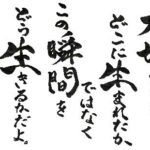 どこに生まれたか、
ではなく
この瞬間を
どう生きるかだよ。